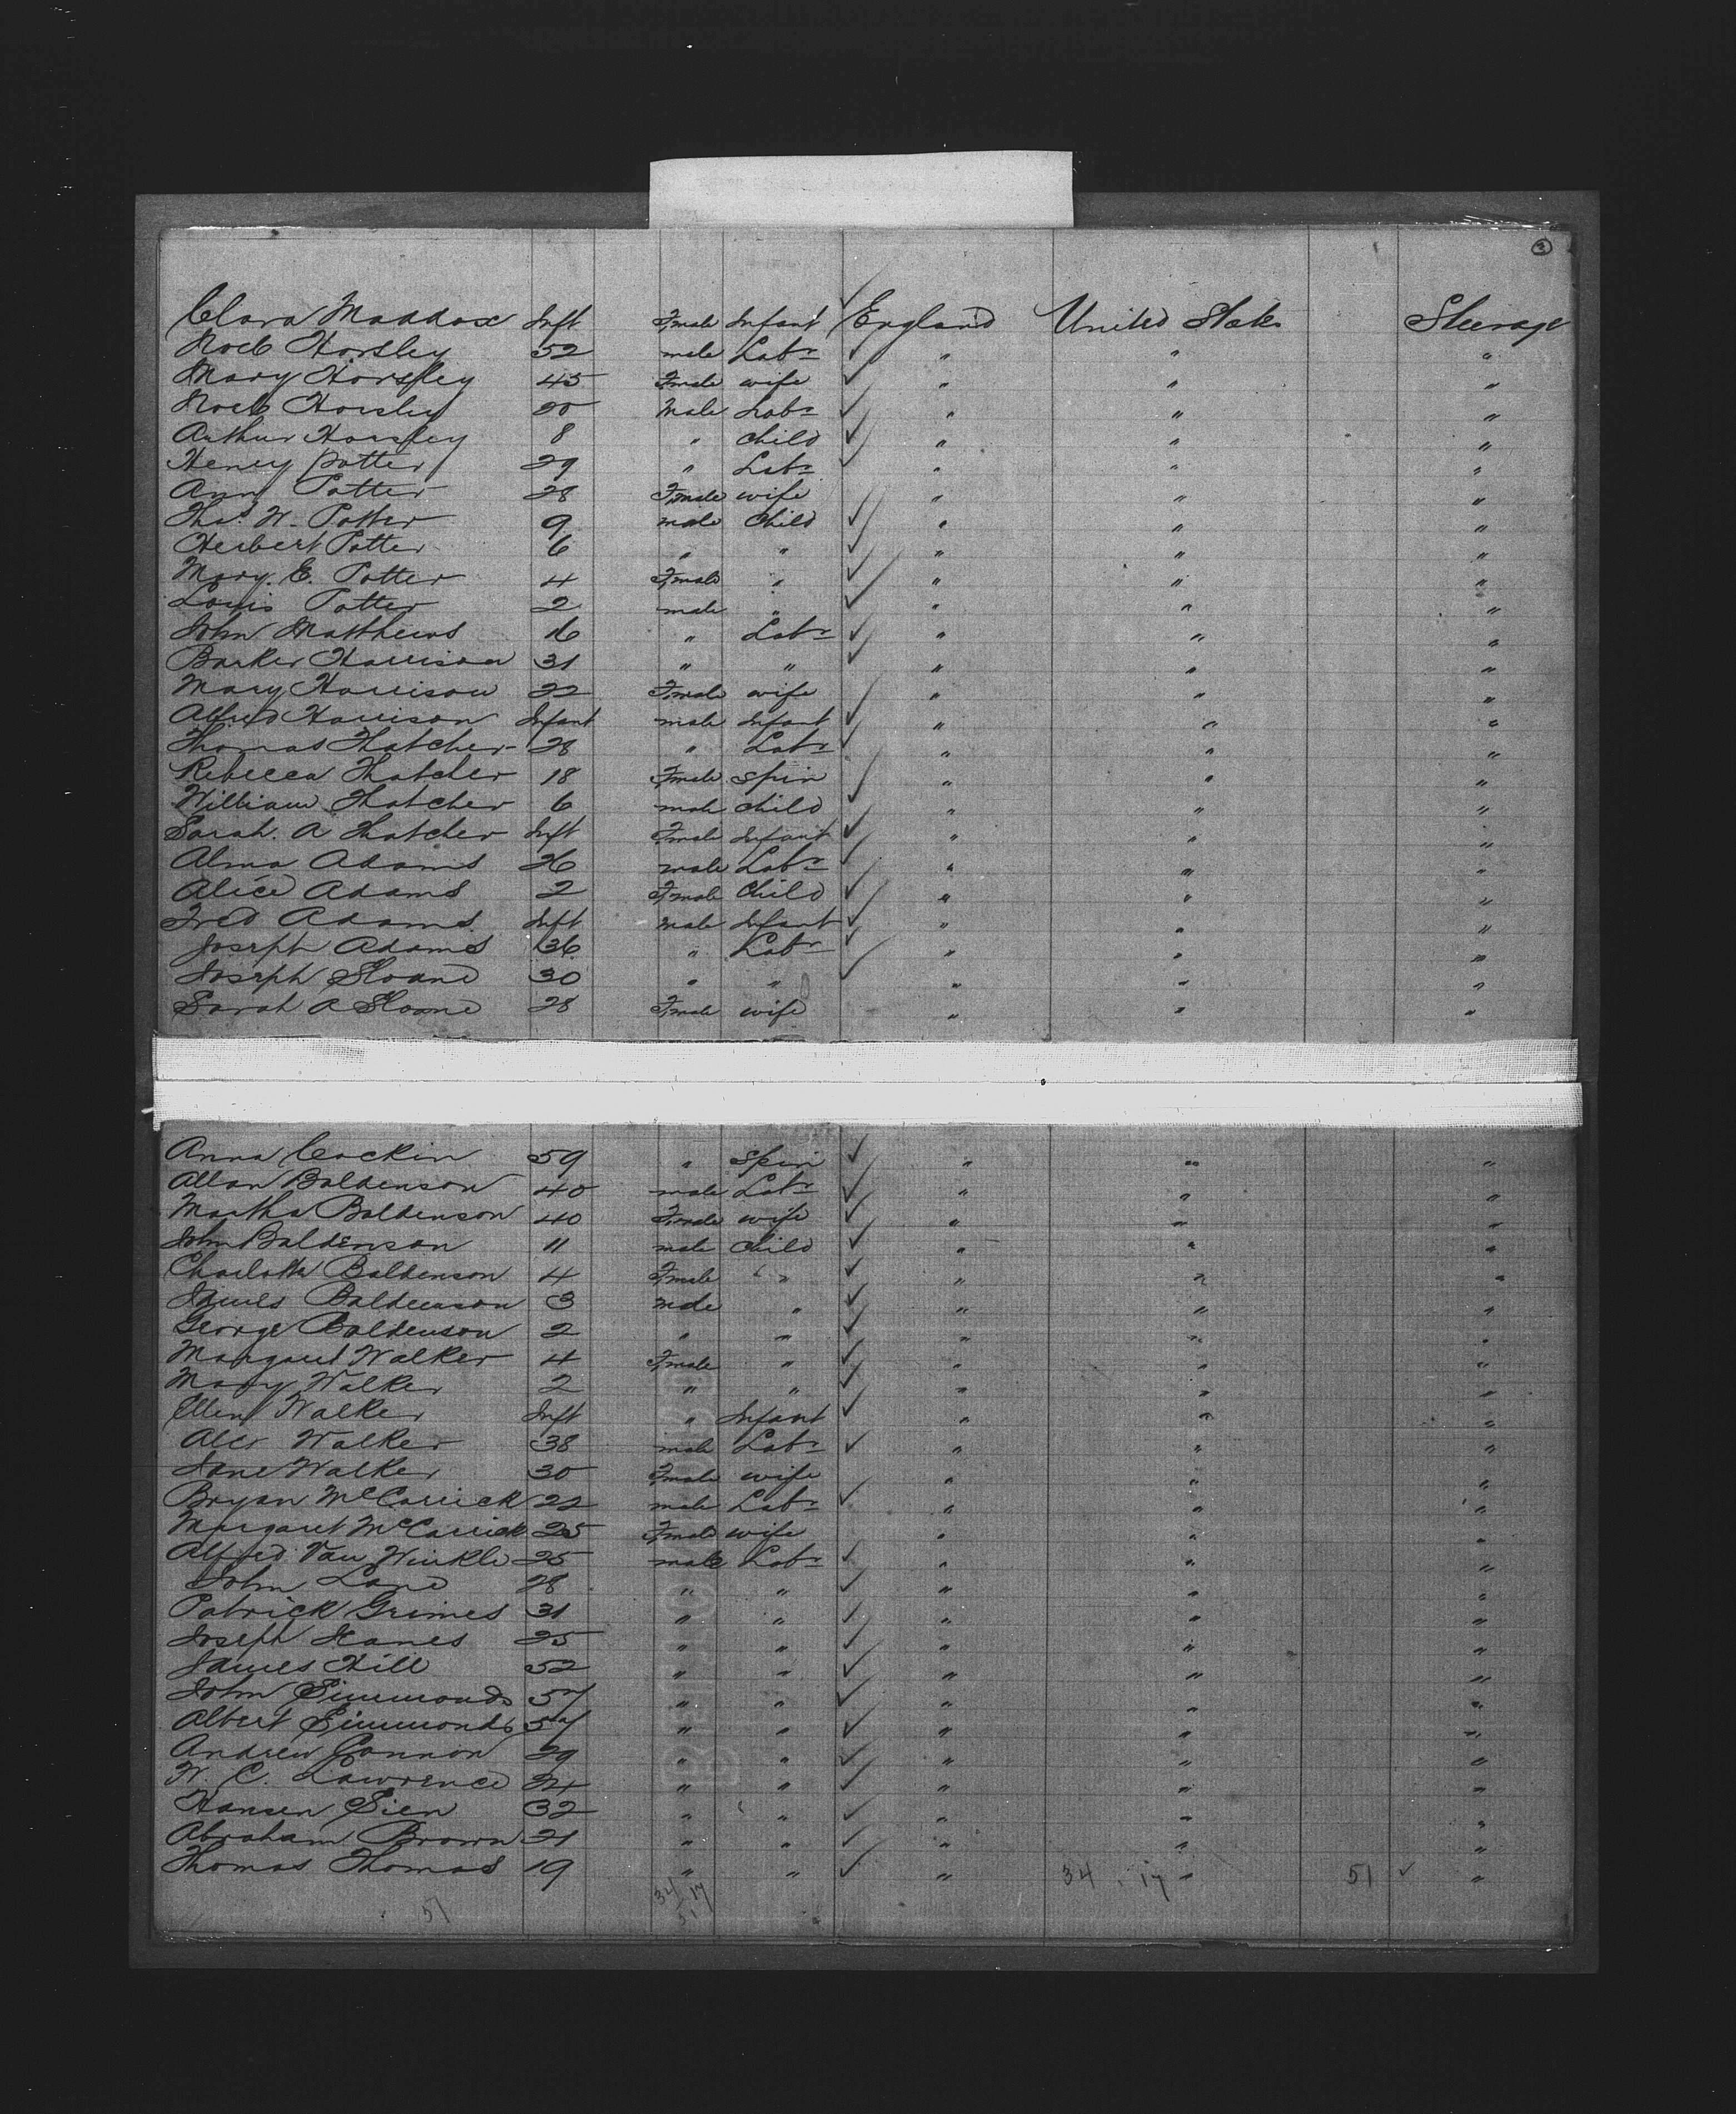 3
Clara Maddox Inft Female Infant England United States Steerage
Noeb Horsley 52 male Labr " " "
Mary Horsley 45 Female wife " " "
Noeb Horsley 20 Male Labr " " "
Arthur Horsley 8 " Child " " "
Henry Potter 29 " Labr " " "
Ann Potter 28 Female wife " " "
Thos. W. Potter 9 male Child " " "
Herbert Potter 6 " " " " "
Mary. E. Potter 4 Female " " " "
Louis Potter 2 male " " " "
John Matthews 16 " Labr " " "
Barker Harrison 31 " " " " "
Mary Harrison 22 Female wife " " "
Alfred Harrison Infant male Infant " " "
Thomas Thatcher 28 " Labr " " "
Rebecca Thatcher 18 Female Spin " " "
William Thatcher 6 male child " " "
Sarah. A Thatcher Inft Female Infant " " "
Alma Adams 26 male Labr " " "
Alice Adams 2 Female Child " " "
Fred Adams Inft male Infant " " "
Joseph Adams 36 " Labr " " "
Joseph Sloane 30 " " " " "
Sarah A Sloane 28 Female wife " " "
Anna Cockin 59 " Spin " " "
Allan Baldenson 40 male Labr " " "
Martha Baldenson 40 Female wife " " "
John Baldenson 11 male Child " " "
Charlotte Baldenson 4 Female " " " "
James Baldenson 3 male " " " "
George Baldenson 2 " " " " "
Margaret Walker 4 Female " " " "
Mary Walker 2 " " " " "
Ellen Walker Inft " Infant " " "
Alex Walker 38 male Labr " " "
Jane Walker 30 Female wife " " "
Bryan McCarrick 22 male Labr " " "
Margaret McCarrick 25 Female wife " " "
Alfred Van Winkle 25 male Labr " " "
John Lane 28 " " " " "
Patrick Grimes 31 " " " " "
Joseph Hanes 25 " " " " "
James Hill 52 " " " " "
John Simmonds 57 " " " " "
Albert Simmonds 57 " " " " "
Andrew Gannon 29 " " " " "
W. C. Lawrence 24 " " " " "
Hansen Sien 32 " " " " "
Abraham Brown 21 " " " " "
Thomas Thomas 19 " " " " "
34 . 17 51
51 34/17
51